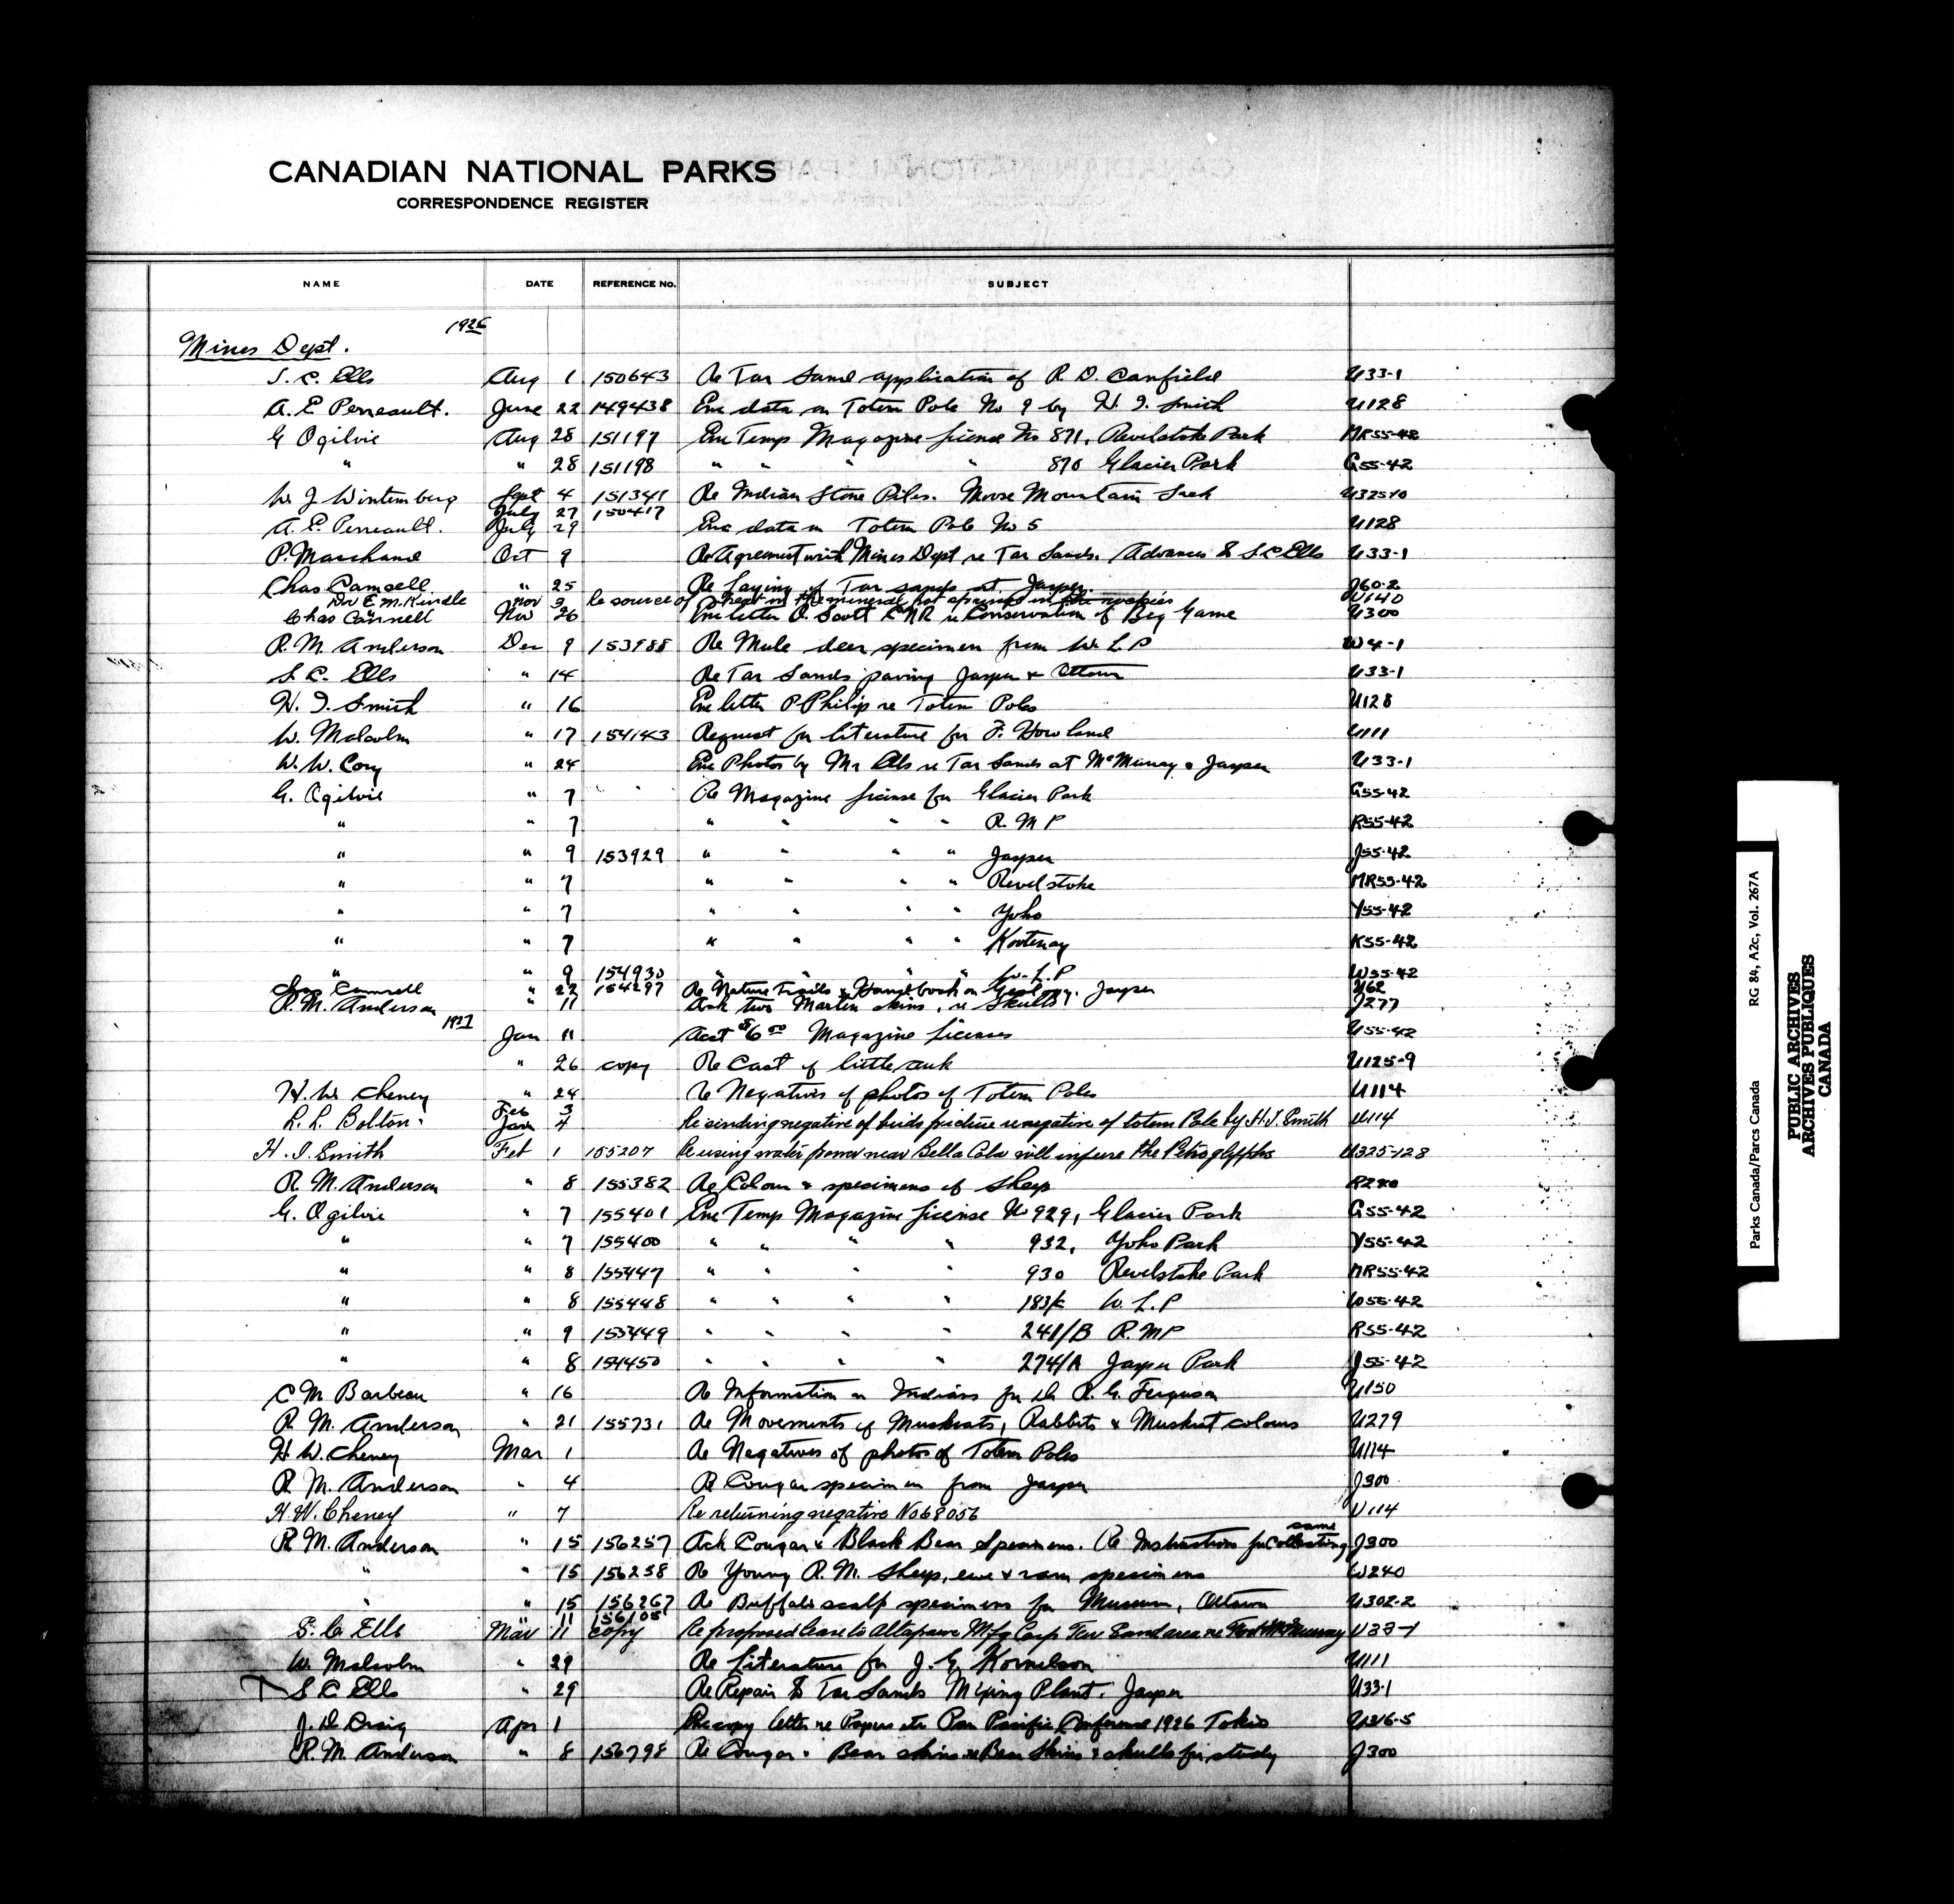 CANADIAN NATIONAL PARKS
CORRESPONDENCE REGISTER
NAME DATE REFERENCE No. SUBJECT
1926
Mines Dept.
S. C. Ells Aug 1 150643 Re Tar Sand application of R. D. Canfield U33-1
A. E Perreault. June 22 149438 Enc data on Totem Pole No 9 by H. I. Smith U128
G Ogilvie Aug 28 151197 Enc Temp Magazine license No 871, Revelstoke Park MR55-42
" " 28 151198 " " " " 870 Glacier Park G55-42
W. J Wintemberg Sept 4 151341 Re Indian Stone Piles. Moose Mountain Sask U325-10
July 27 150417
A. E. Perreault. July 29 Enc data on Totem Pole No 5 U128
P. Marchand Oct 9 Re Agreement with Mines Dept re Tar Sands. Advances to S. C Ells U33-1
Chas Camsell " 25 Re Laying of Tar sands at Jasper. J60-2
Dr E. M. Kindle Nov 3 Re source of heat in the mineral hot springs in the rockies U140
Chas Camsell Nov 26 Enc letter O. Scott CNR re Conservation of Big Game U300
R. M. Anderson Dec 9 153988 Re Mule deer specimen from W. L P W4-1
S. C. Ells " 14 Re Tar Sands paving Jasper & Ottawa U33-1
H. I. Smith " 16 Enc letter P Philip re Totem Poles U128
W. Malcolm " 17 154143 Request for literature for F. Howland U111
W. W. Cory " 24 Enc Photos by Mr Ells re Tar Sands at McMurray & Jasper U33-1
G. Ogilvie " 7 Re Magazine license for Glacier Park G55-42
" " 7 " " " " R. M P R55-42
" " 9 153929 " " " " Jasper J55-42
" " 7 " " " " Revelstoke MR55-42
" " 7 " " " " Yoho Y55-42
" " 7 " " " " Kootenay K55-42
" " 9 154930 " " " " W. L. P W55-42
Chas Camsell " 22 154297 Re Nature Trails & Handbook on Geology. Jasper U62
R. M. Anderson " 11 Ack two Marten skins, re Skulls J277
1927
Jan 11 Acct $6.00 Magazine licenses U55-42
" 26 copy Re Cast of little auk U125-9
H. W Cheney " 24 Re Negatives of photos of Totem Poles U114
Feb 3
L. L. Bolton. Jan 4 Re sending negative of birds picture re negative of totem Pole by H. I. Smith U114
H. I. Smith Feb 1 155207 Re using water power near Bella Cola will injure the Petroglyphs U325-128
R. M. Anderson " 8 155382 Re Colour & specimens of Sheep
G. Ogilvie " 7 155401 Enc Temp Magazine License No 929, Glacier Park G55-42
" " 7 155400 " " " " 932, Yoho Park Y55-42
" " 8 155447 " " " " 930 Revelstoke Park MR55-42
" " 8 155448 " " " " W. L. P W55-42
" " 9 155449 " " " " 241/B R. M P R55-42
" " 8 154450 " " " " 274/A Jasper Park J55-42
C M. Barbeau " 16 Re Information on Indians for Dr R. G. Ferguson U150
R. M. Anderson " 21 155731 Re Movements of Muskrats, Rabbits & Muskrat colours U279
H W. Cheney Mar 1 Re Negatives of photos of Totem Poles U114
R. M. Anderson " 4 Re Cougar specimen from Jasper J300
H. W. Cheney " 7 Re returning negative No 68056 U114
R. M. Anderson " 15 156257 Ack Cougar & Black Bear Specimens. Re Instructions for collecting same J300
" " 15 156258 Re Young R. M. Sheep, ewe & ram specimens W240
" " 15 156267 Re Buffalo scalp specimens for Museum, Ottawa U302-2
" 11 156105
S. C. Ells Mar 11 copy Re proposed lease to Mfg Corp Tar Sand area re Fort McMurray U33-1
W. Malcolm " 29 Re Literature for J. G. Kornelson U111
S C Ells " 29 Re Repair to Tar Sands Mixing Plant. Jasper U33-1
J. D Craig Apr 1 copy letter re Papers etc Pan Pacific Conference 1926 Tokio U216-5
R. M. Anderson " 8 156798 Re Cougar & Bear skins re Bear Skins & skulls for study J300
Parks Canada/Parcs Canada RG 84, A2c, Vol. 267A
PUBLIC ARCHIVES
ARCHIVES PUBLIQUES
CANADA